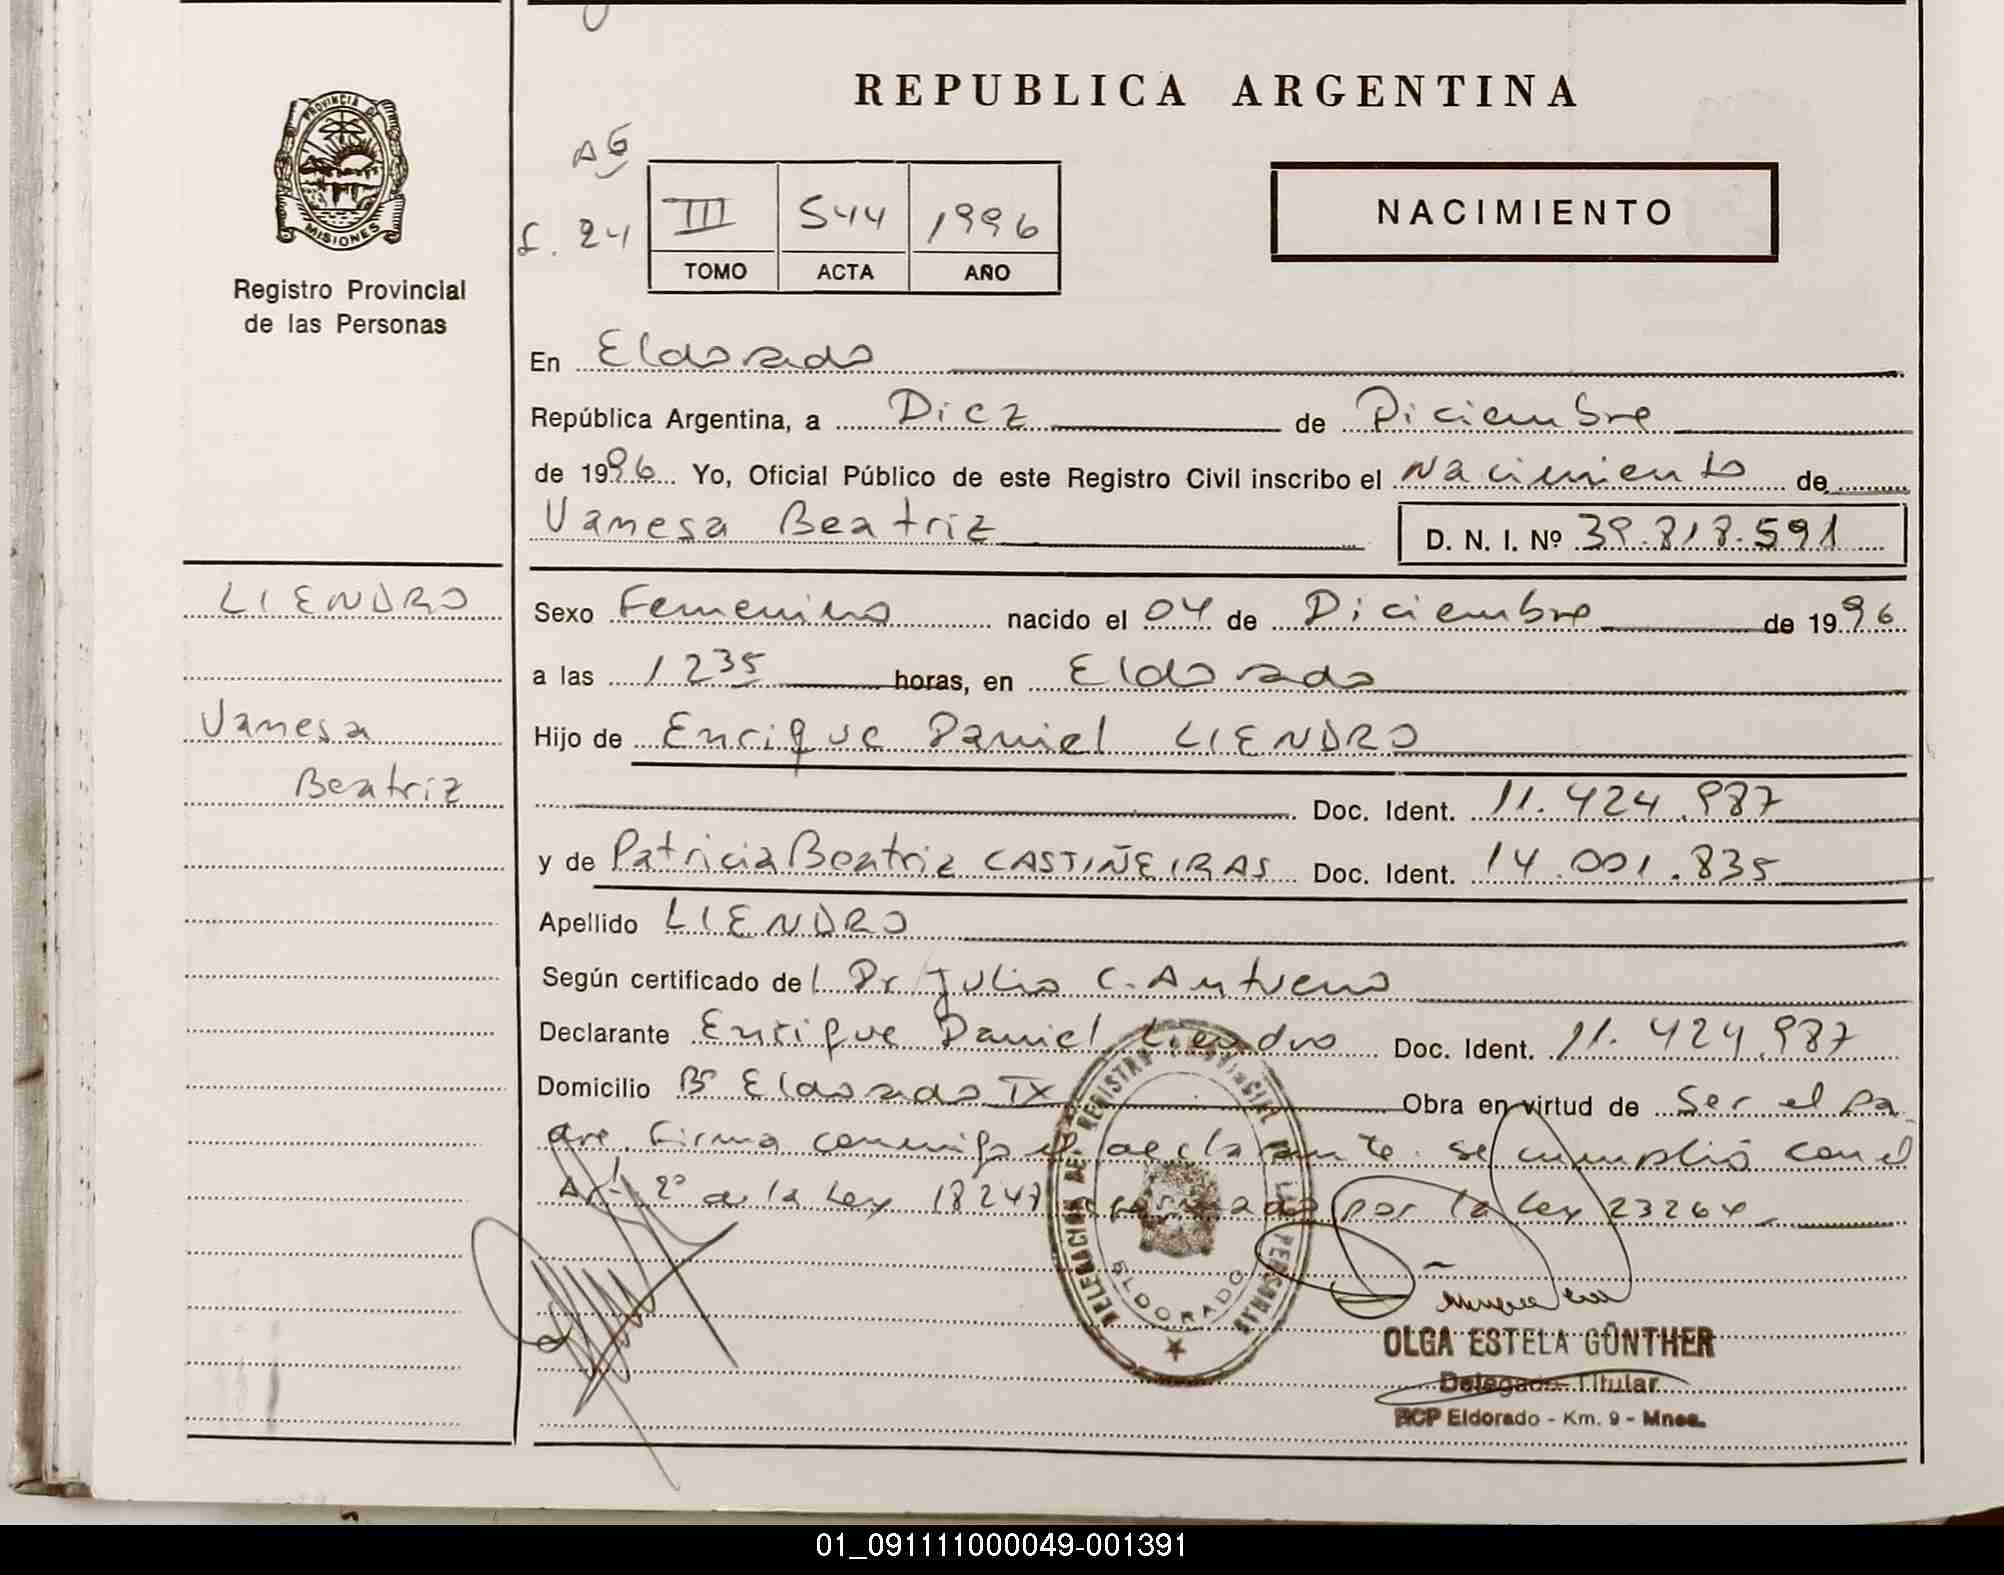 REPUBLICA ARGENTINA
PROVINCIA DE
MISIONES
Registro Provincial
de las Personas
AG
F. 24
III 544 1996
TOMO ACTA AÑO
NACIMIENTO
En Eldorado
República Argentina, a Diez de Diciembre
de 1996 Yo, Oficial Público de este Registro Civil inscribo el Nacimiento de
Vanesa Beatriz D. N. I. Nº 39.818.591
LIENDRO
Sexo Femenino nacido el 04 de Diciembre de 1996
a las 1235 horas, en Eldorado
Vanesa
Hijo de Enrique Daniel LIENDRO
Beatriz
Doc. Ident. 11.424.987
y de Patricia Beatriz CASTIÑEIRAS Doc. Ident. 14.001.835
Apellido LIENDRO
Según certificado del Dr Julio C. Antueno
Declarante Enrique Daniel Liendro Doc. Ident. 11.424.987
Domicilio Bº Eldorado IX Obra en virtud de Ser el Pa
dre. Firma conmigo el declarante. se cumplió con el
Art 2º de la Ley 18247 por la Ley 23264
DELEGACION DE REGISTRO PROVINCIAL DE LAS PERSONAS
ELDORADO
OLGA ESTELA GÜNTHER
Delegada Titular
RCP Eldorado - Km. 9 - Mnes.
01_091111000049-001391